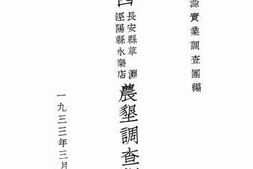 源實業調查團編
長安縣草灘
涇陽縣永樂店
農墾調查
一九三三年三月